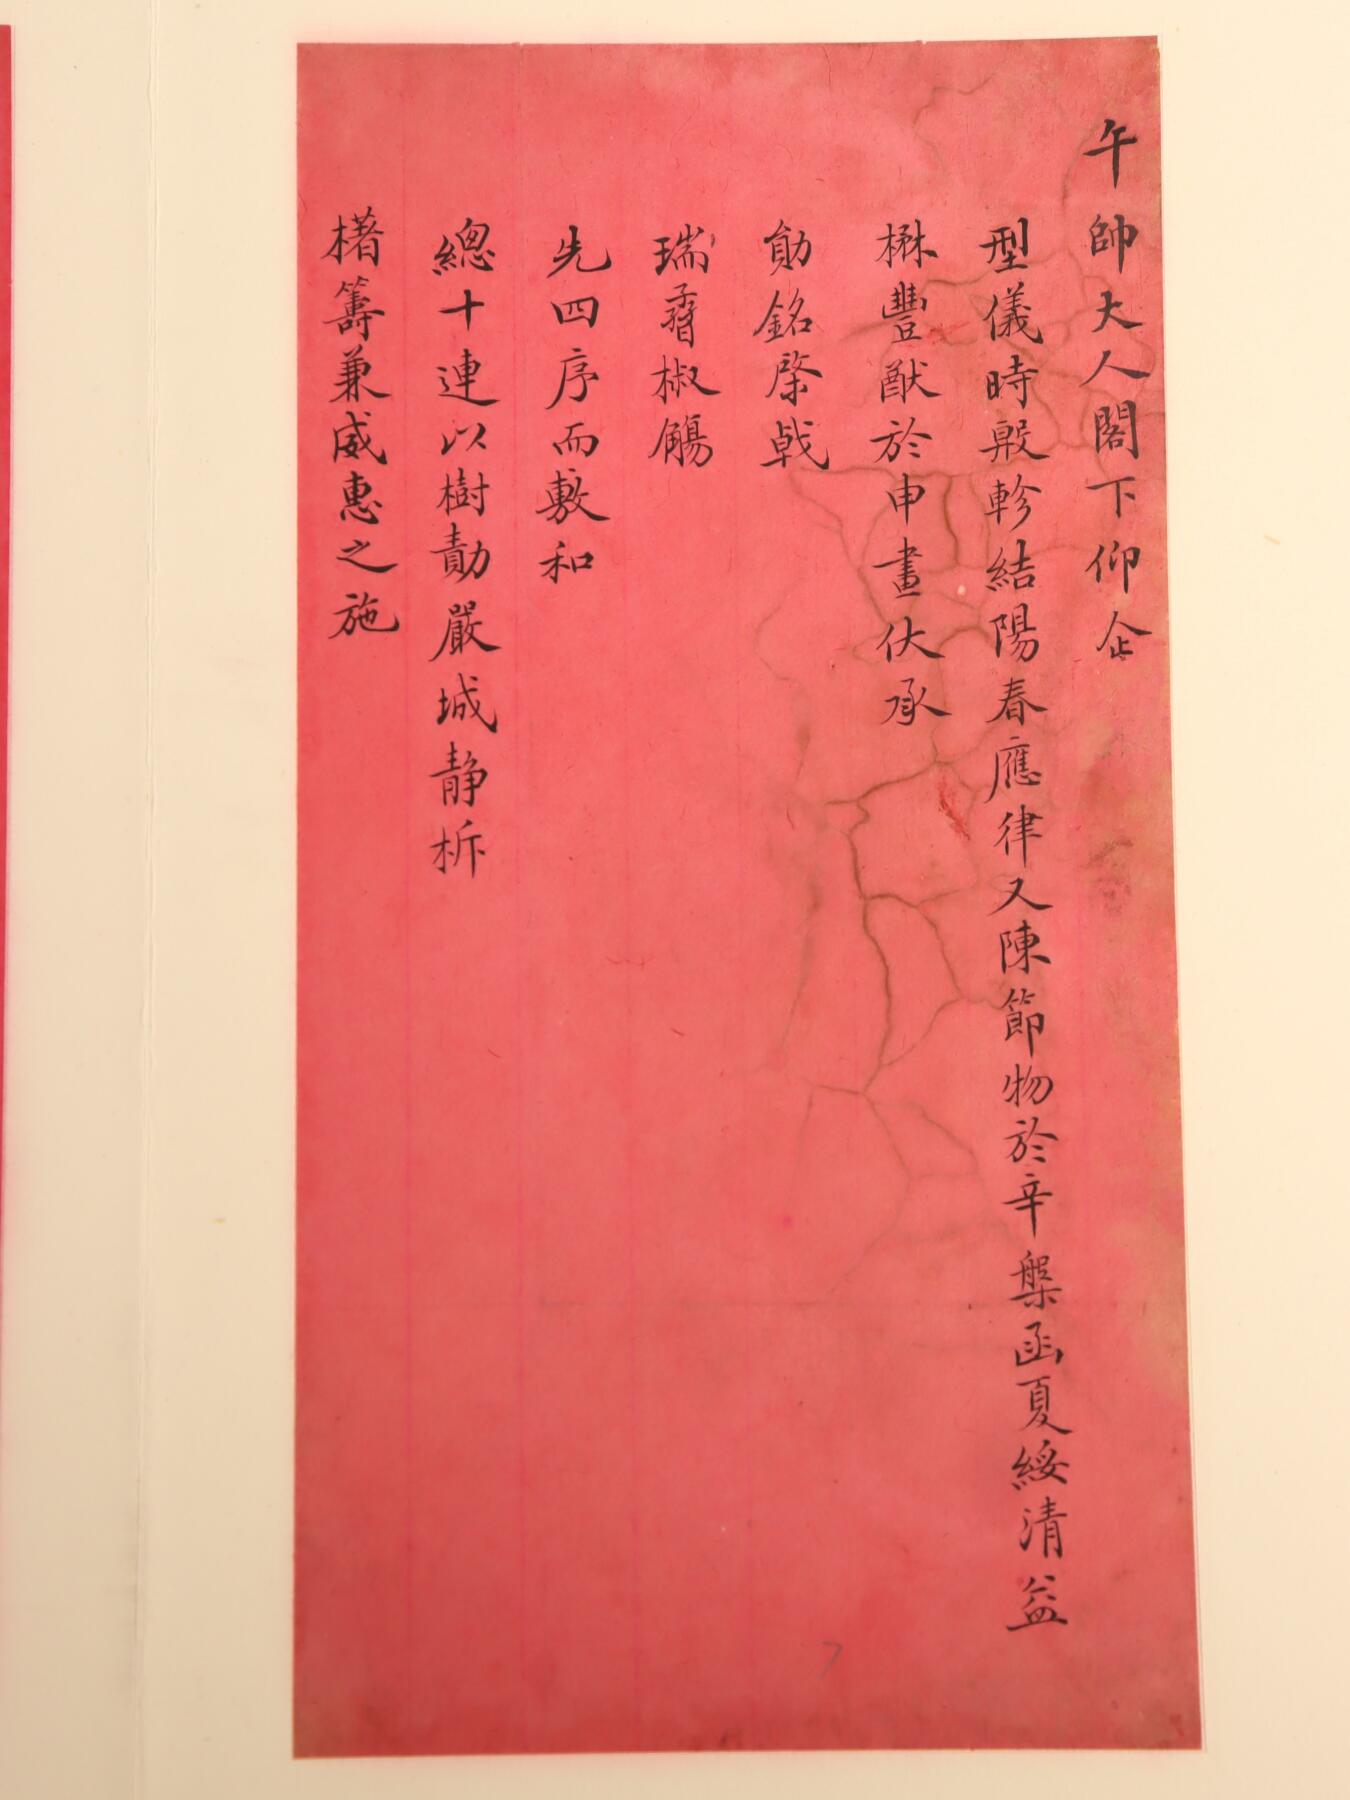 午帥大人閣下仰企
型儀時殷軫結陽春應律又陳節物於辛槃函夏綏清益
楙豐猷於申畫伏承
勛銘棨戟
瑞晉椒觴
先四序而敷和
總十連以樹勣嚴城靜柝
楮籌兼威惠之施